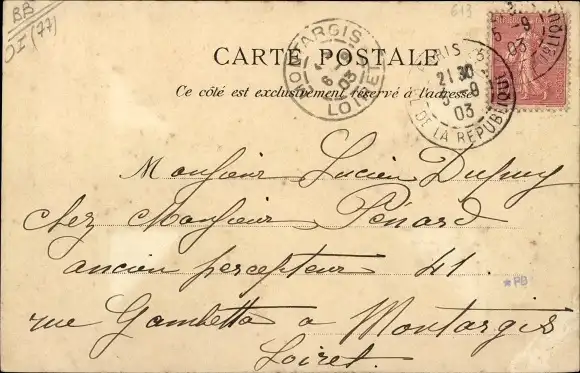 BB
OI (77)
613
CARTE POSTALE
Ce côté est exclusivement réservé à l'adresse
MONTARGIS
6 -9
03
LOIRET
PARIS
21 30
5 -9
03
DE LA RÉPUBLIQUE
5 -9
03
Monsieur Lucien Dupuy
chez Monsieur Pénard
ancien percepteur 41.
*PB
rue Gambetta a Montargis
Loiret.